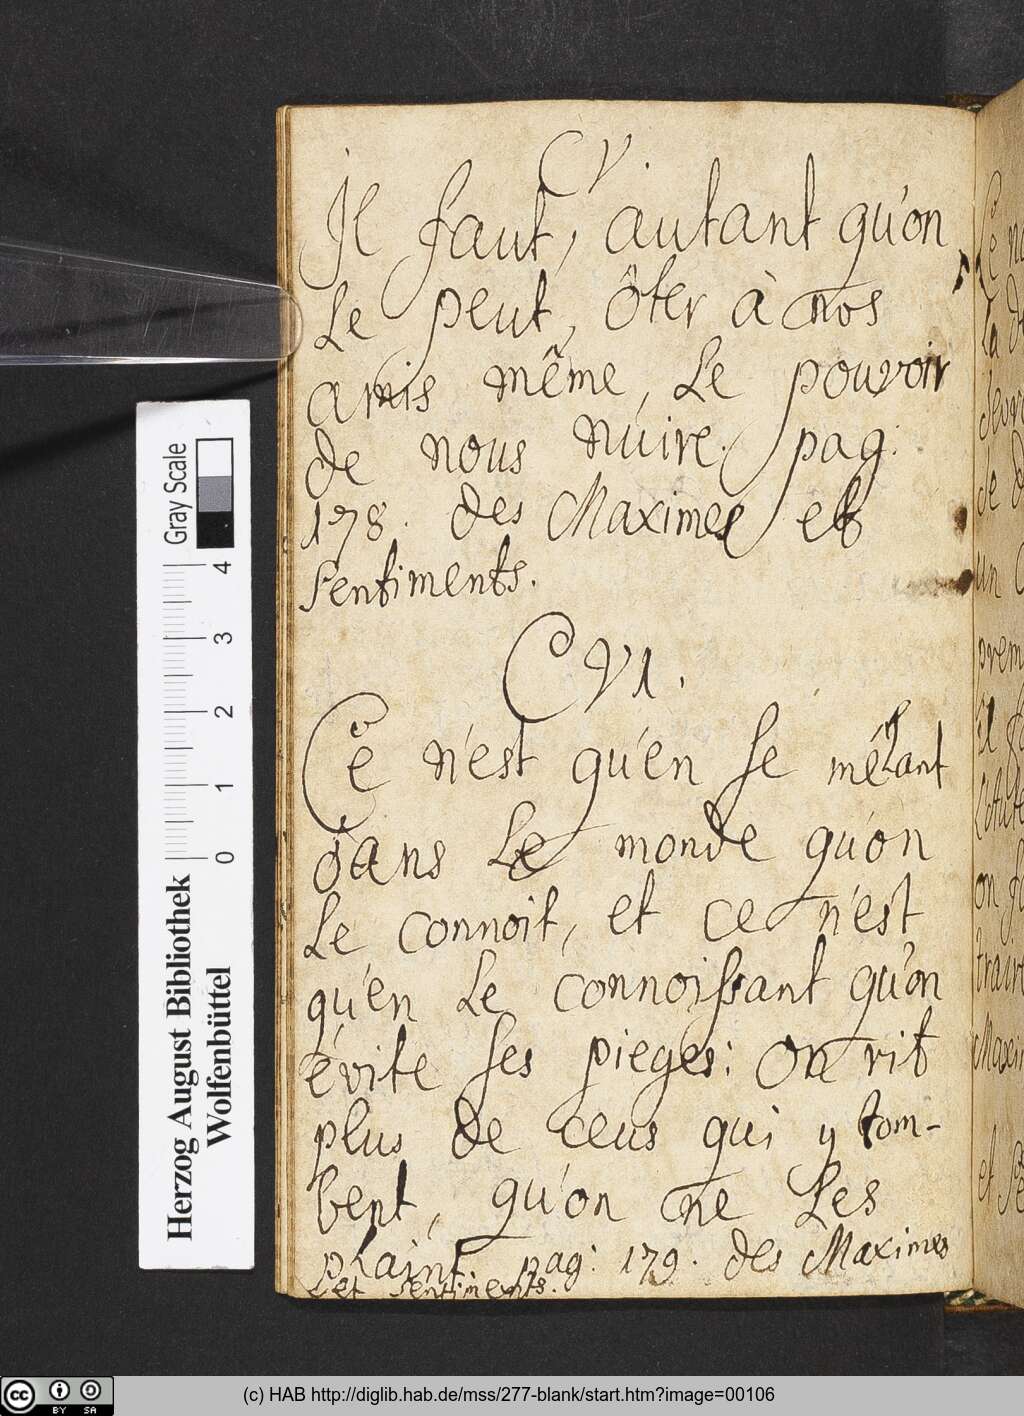 CV.
Il faut, autant qu'on
le peut, ôter à nos
amis même, le pouvoir
de nous nuire. pag:
178. des Maximes et
sentiments.
CVI.
Ce n'est qu'en se mêlant
dans le monde qu'on
le connoit, et ce n'est
qu'en le connoissant qu'on
évite ses pieges: on rit
plus de ceus qui y tom-
bent, qu'on ne les
plaint. pag: 179. des Maximes
et sentiments.
Gray Scale
0 1 2 3 4
Herzog August Bibliothek
Wolfenbüttel
cc BY SA
(c) HAB http://diglib.hab.de/mss/277-blank/start.htm?image=00106